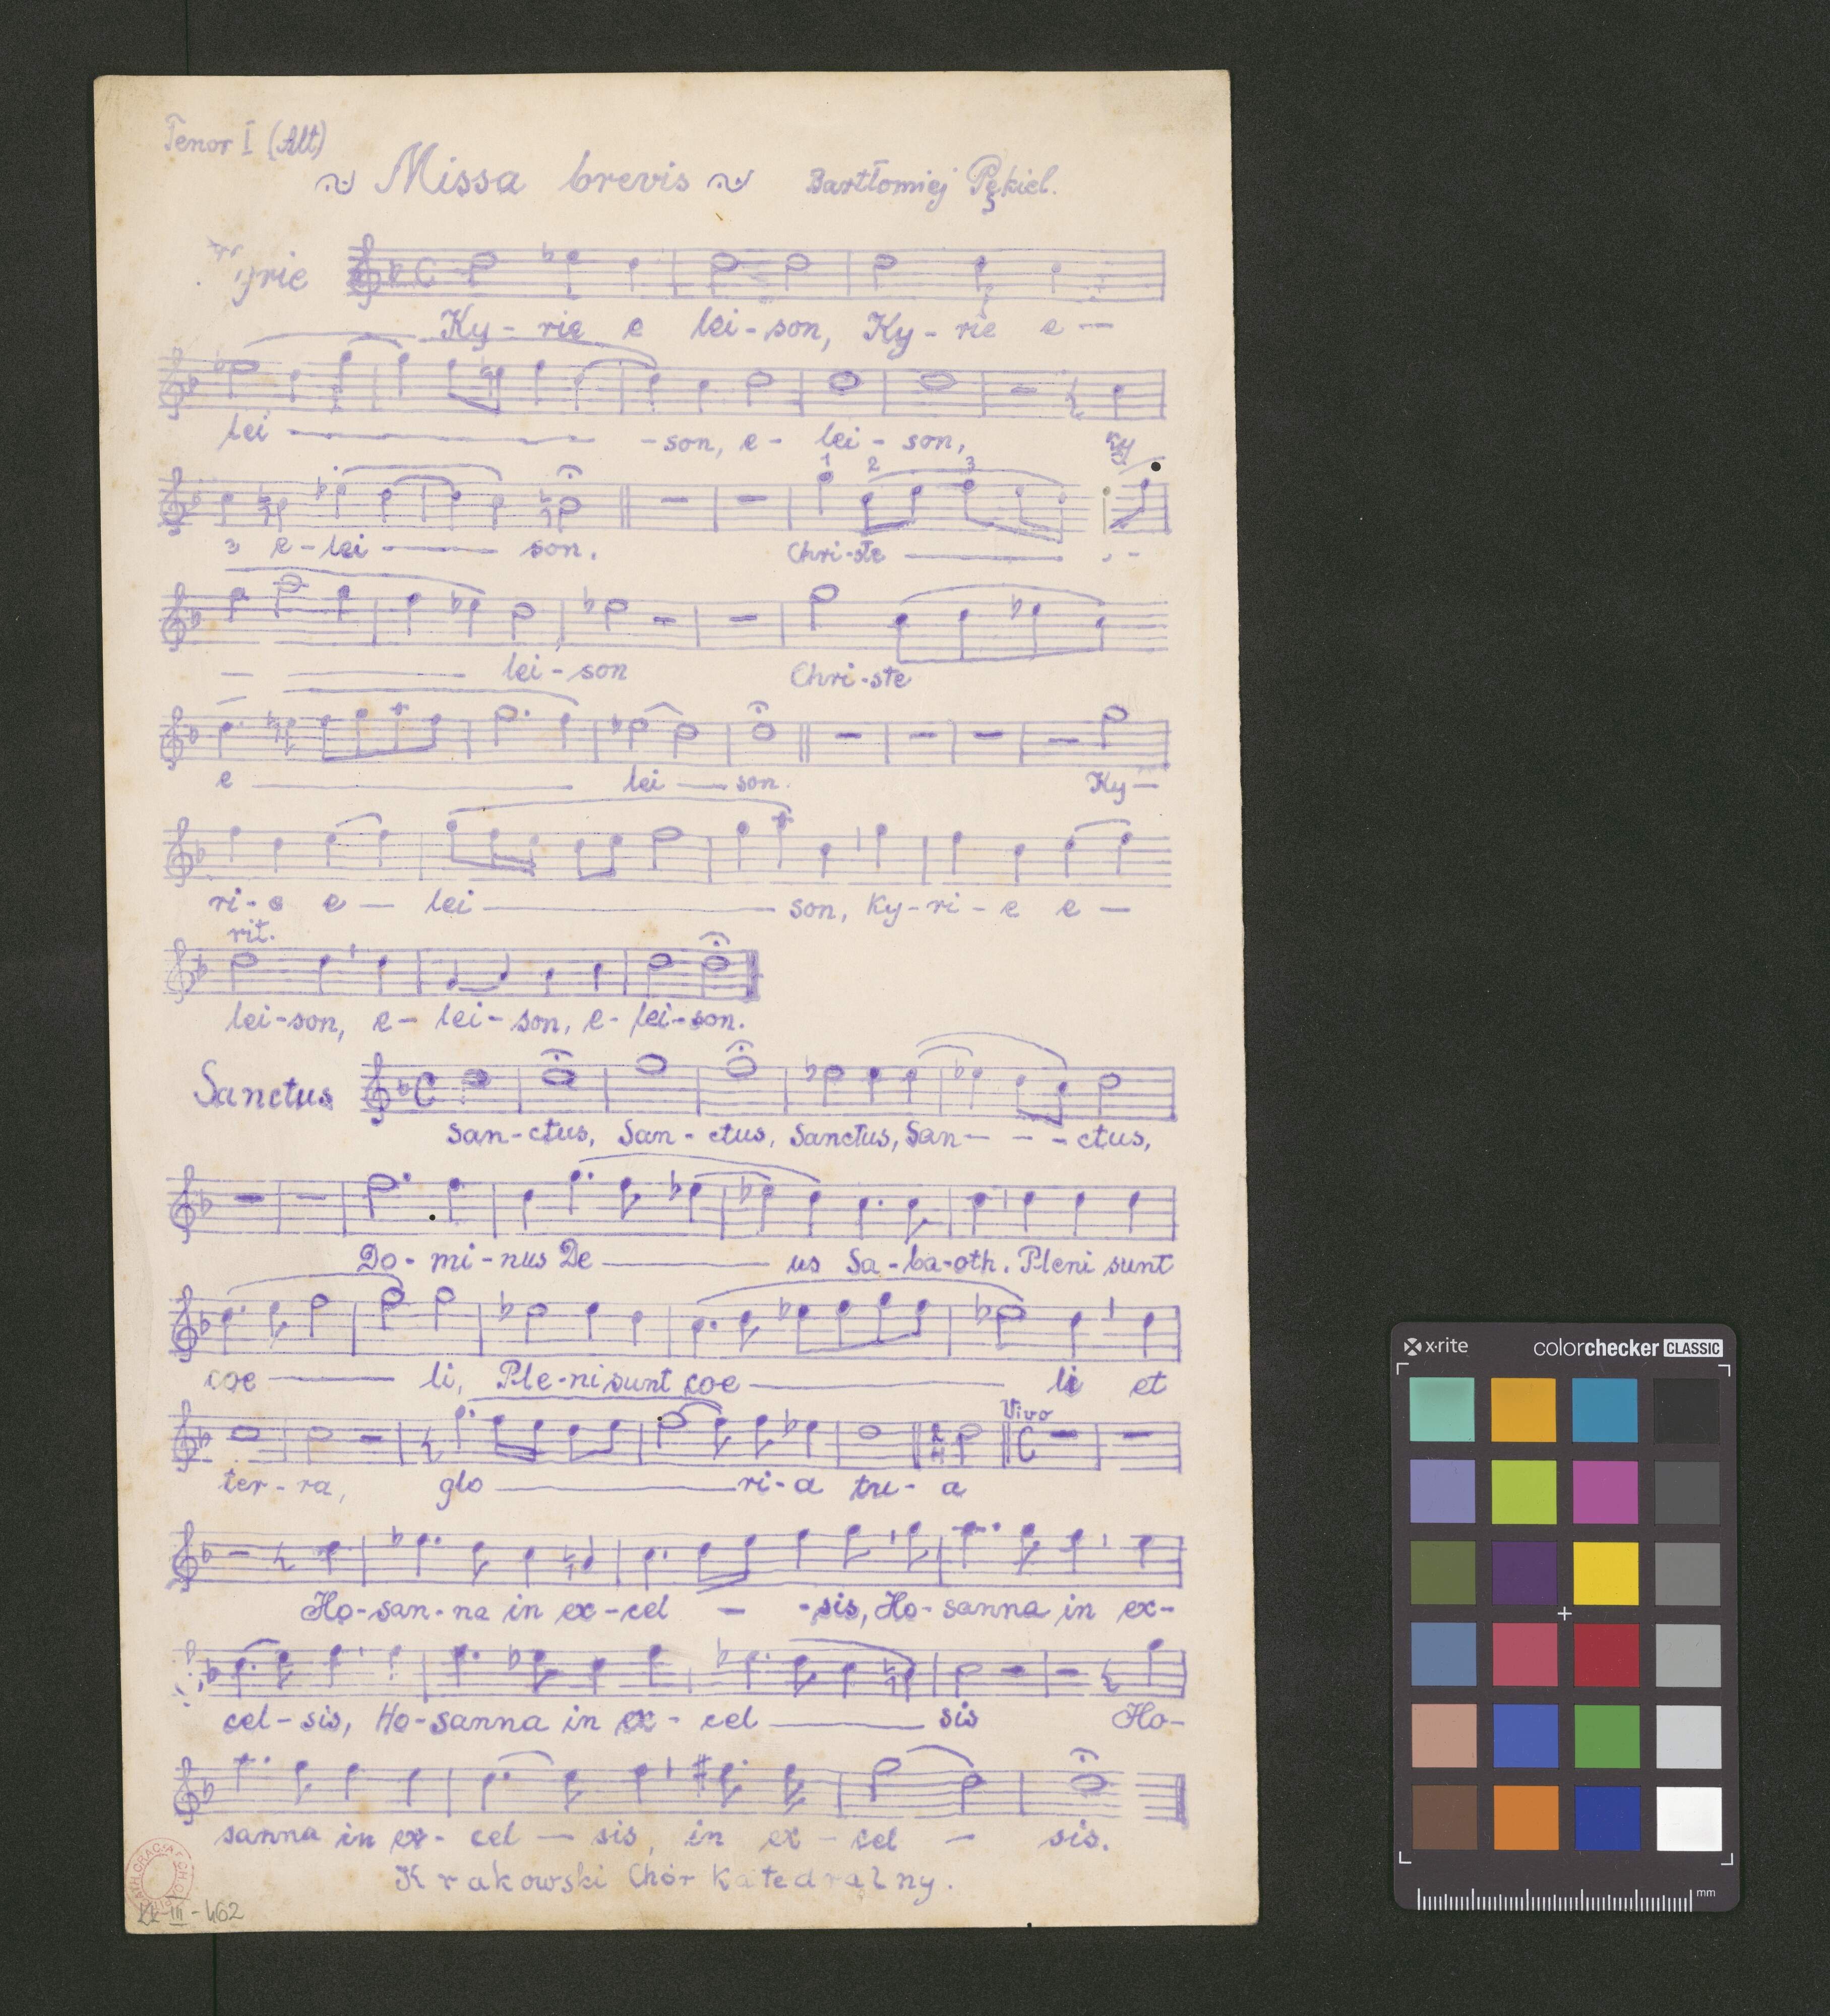 Tenor I (Alt)
Missa brevis Bartłomiej Pękiel.
Ky-rie e lei-son, Ky-rie e —
lei — -son, e- lei-son, Ky
e-lei — son. Chri-ste —
lei-son Chri-ste
e — lei — son. Ky—
ri-e e — lei — son, Ky-ri-e e —
rit.
lei-son, e- lei-son, e- lei-son.
Sanctus
San-ctus, San-ctus, Sanctus, San- - -ctus,
Do-mi-nus De — us Sa-ba-oth. Pleni sunt
coe — li, Ple-ni sunt coe — li et
Vivo
ter-ra, glo — ri-a tu-a
Ho-san-na in ex-cel — -sis, Ho-sanna in ex-
cel-sis, Ho-sanna in ex-cel — sis Ho-
sanna in ex-cel — sis, in ex-cel — sis.
Krakowski Chór Katedralny.
III-462
x·rite colorchecker CLASSIC
mm